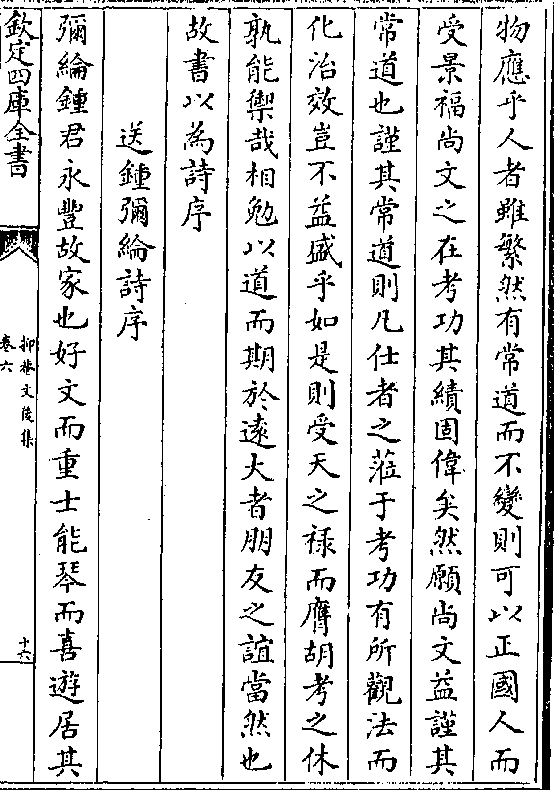 物應乎人者雖繁然有常道而不變則可以正國人而
受景福尚文之在考功其績固偉矣然願尚文益謹其
常道也謹其常道則凡仕者之蒞于考功有所觀法而
化治效豈不益盛乎如是則受天之祿而膺胡考之休
孰能禦哉相勉以道而期於遠大者朋友之誼當然也
故書以為詩序
送鍾彌綸詩序
彌綸鍾君永豐故家也好文而重士能琴而喜遊居其
欽定四庫全書
抑菴文後集
卷六
十六